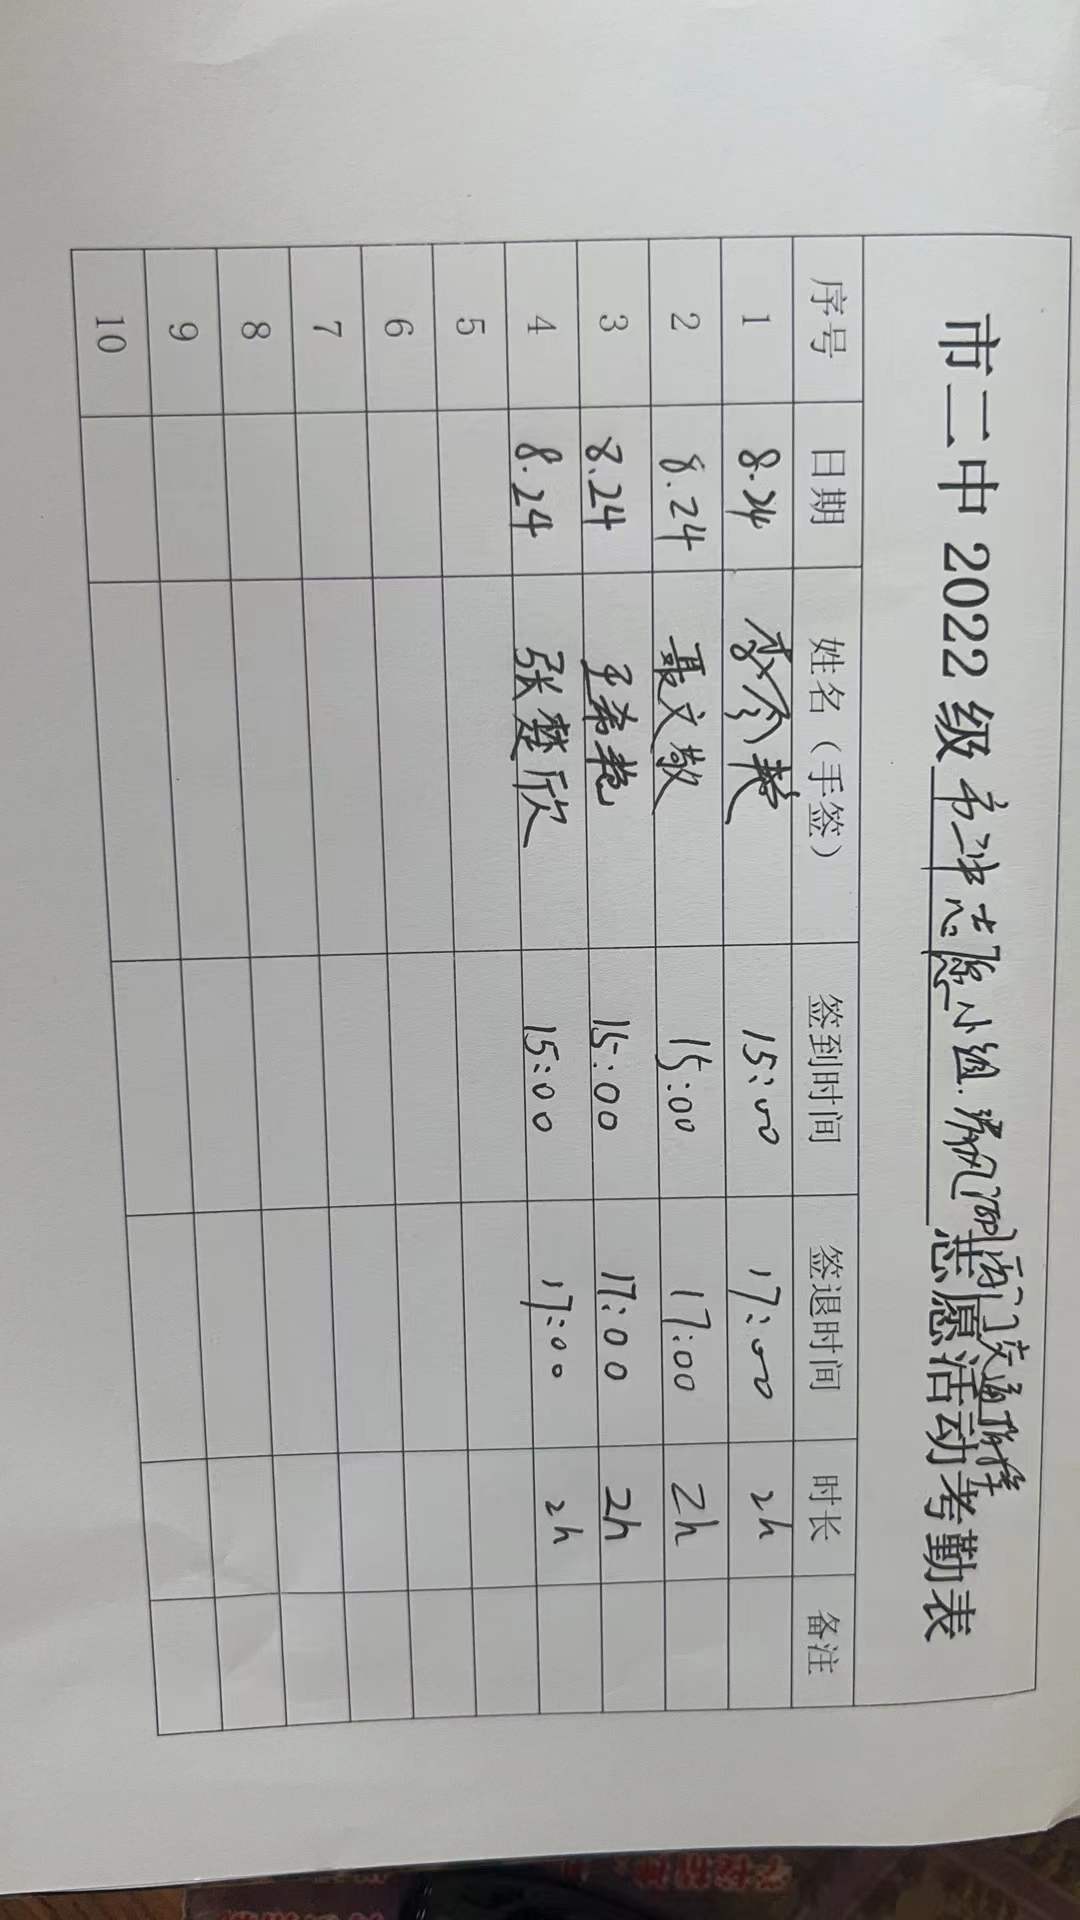 市二中 2022 级市二中志愿小组.清风湖南门交通指挥志愿活动考勤表
序号 日期 姓名（手签） 签到时间 签退时间 时长 备注
1 8.24 15:00 17:00 2h
2 8.24 聂文敬 15:00 17:00 2h
3 8.24 王希艳 15:00 17:00 2h
4 8.24 张楚欣 15:00 17:00 2h
5
6
7
8
9
10